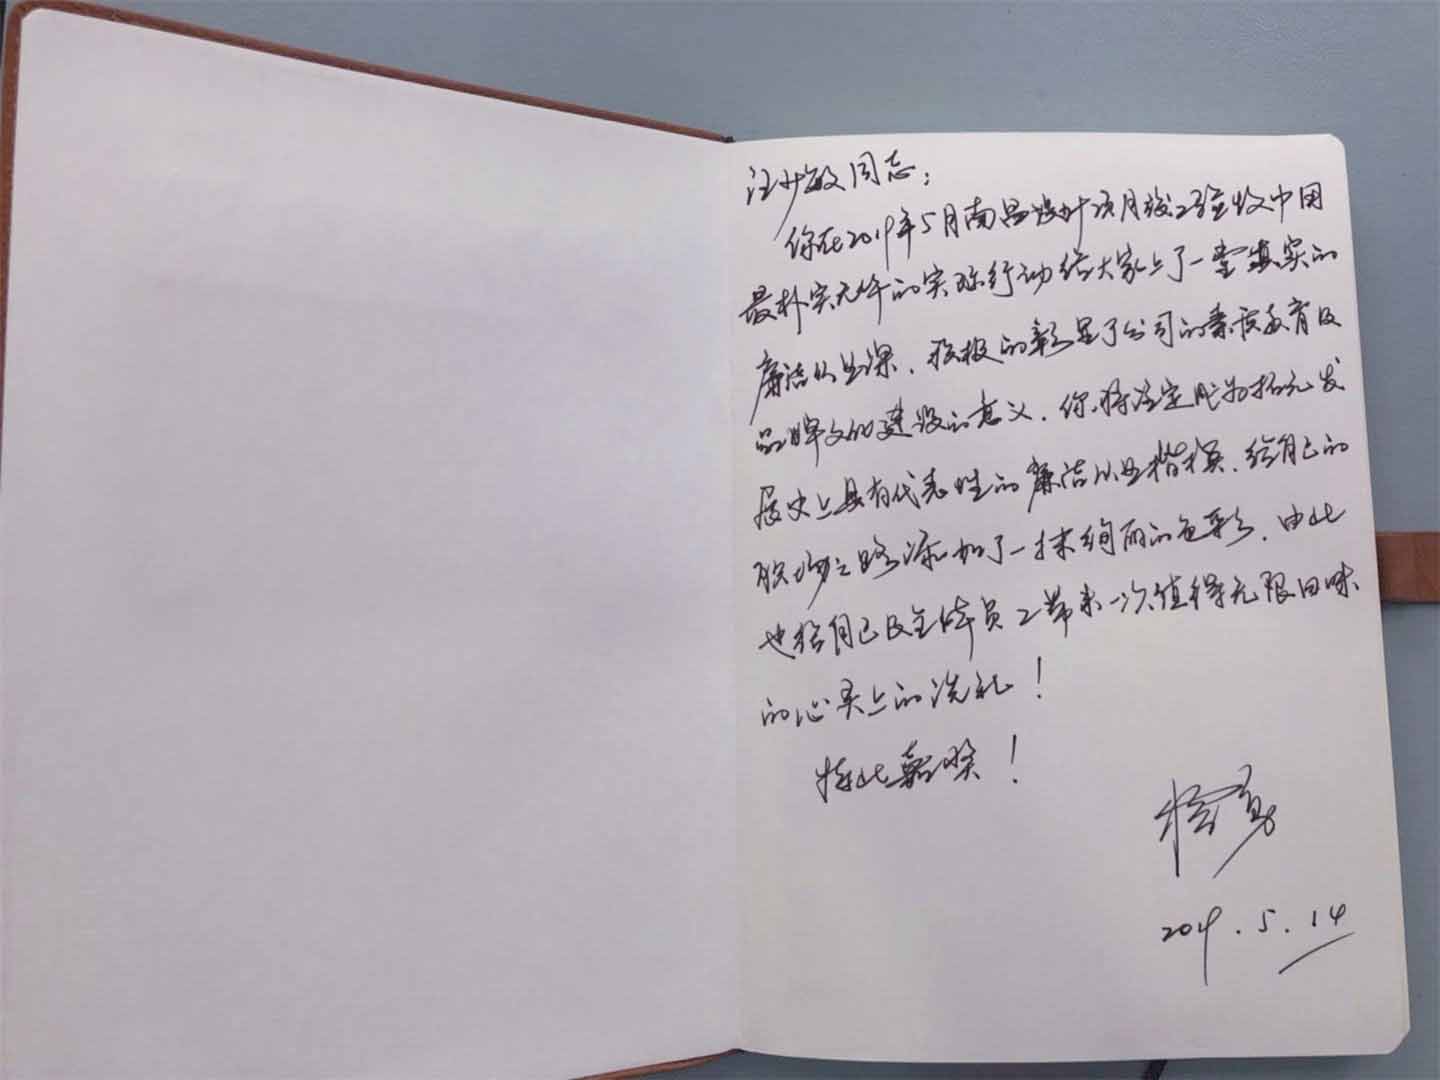 汪少敏同志：
你在2019年5月南昌设计项目竣工验收中用
最朴实无华的实际行动给大家上了一堂真实的
廉洁从业课，积极的彰显了公司的素质教育及
品牌文化建设的意义，你将注定成为拓元发
展史上具有代表性的廉洁从业楷模，给自己的
职场之路添加了一抹绚丽的色彩，由此
也给自己及全体员工带来一次值得无限回味
的心灵上的洗礼！
特此嘉奖！
2019.5.14